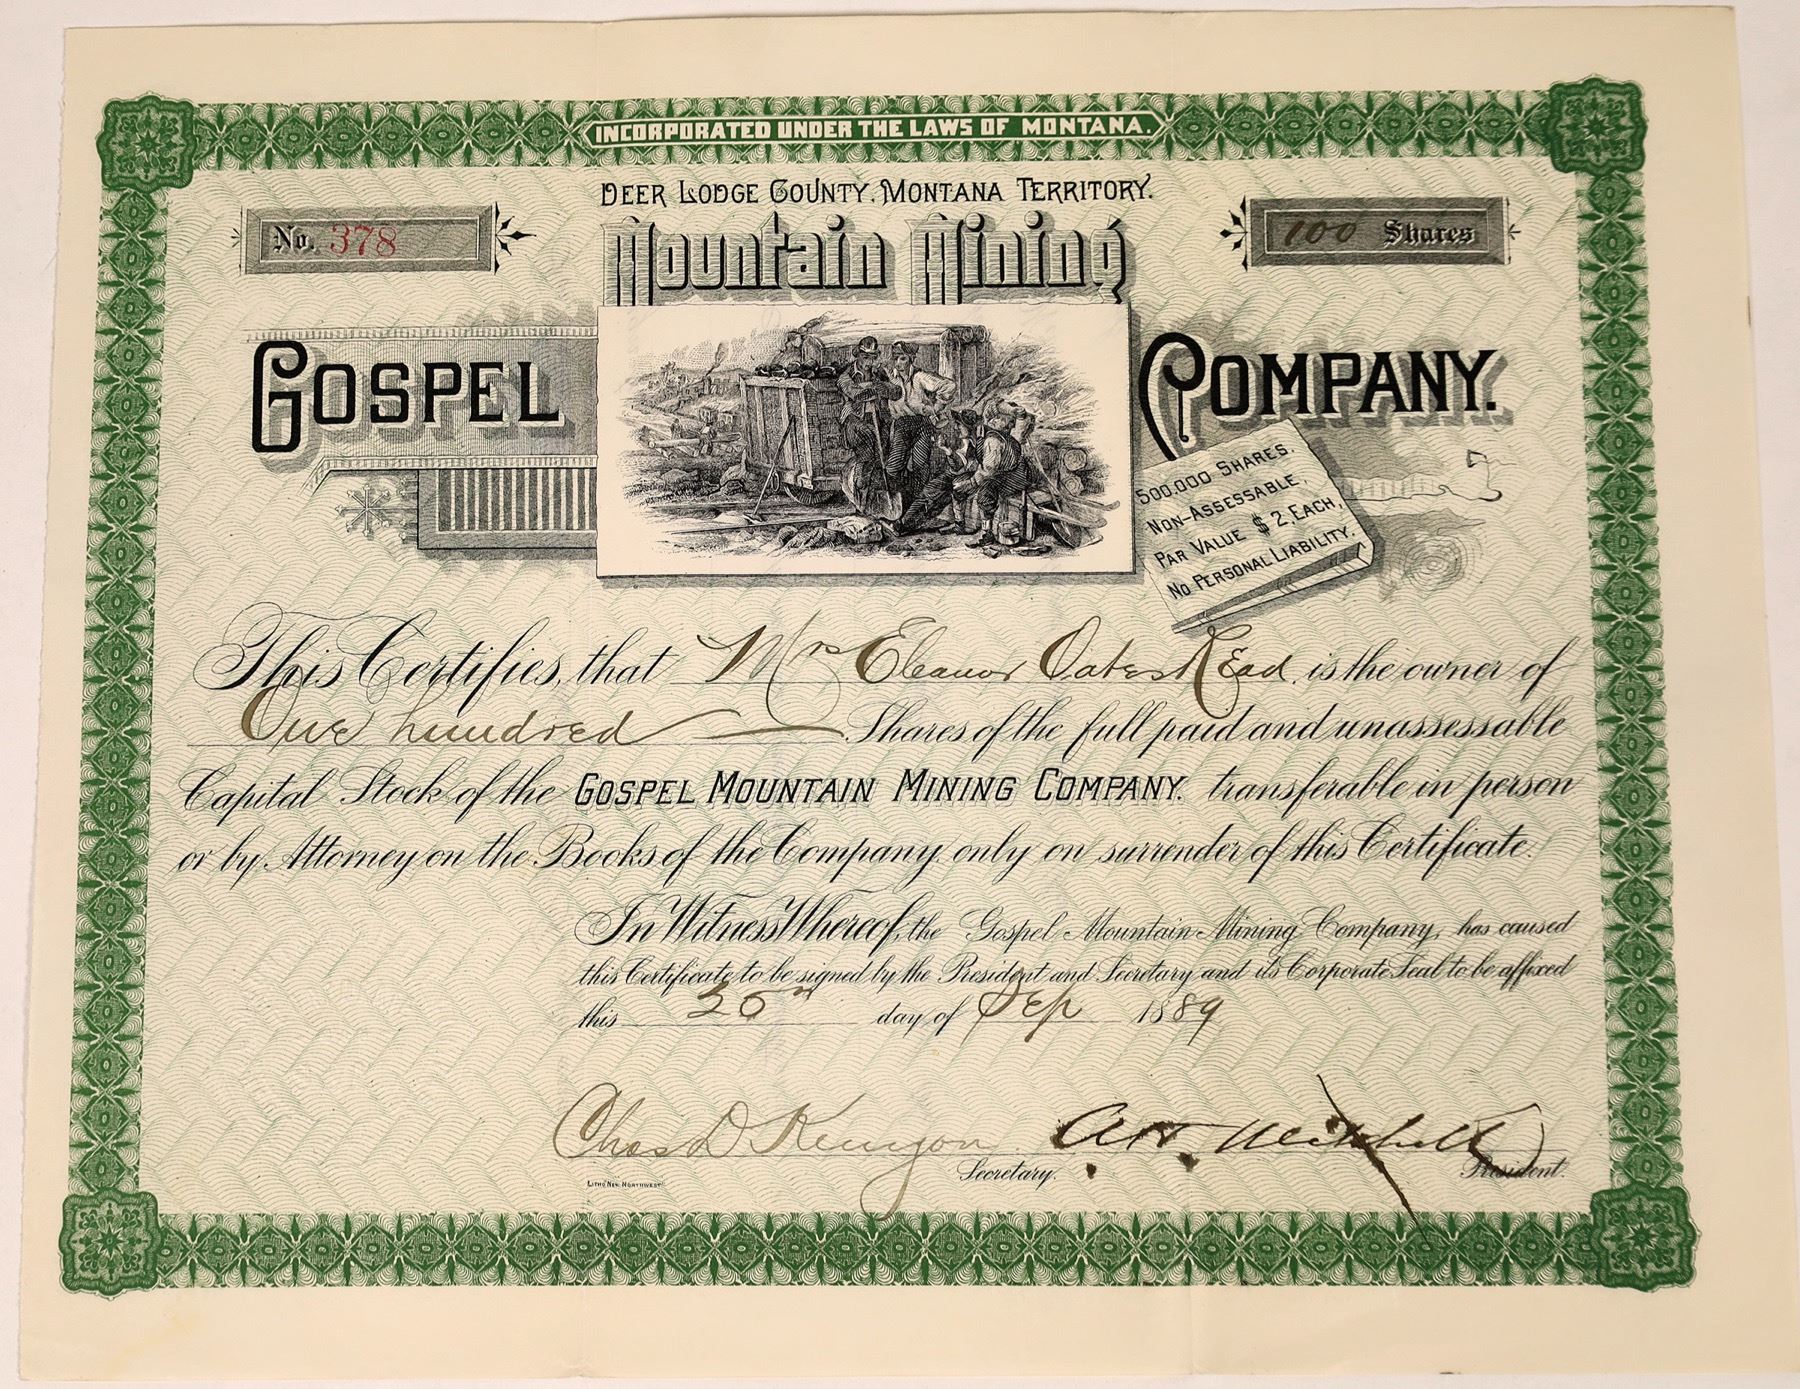 INCORPORATED UNDER THE LAWS OF MONTANA.
DEER LODGE COUNTY, MONTANA TERRITORY.
No. 378
100 Shares
Mountain Mining
GOSPEL COMPANY.
500,000 SHARES.
NON-ASSESSABLE,
PAR VALUE $2, EACH,
NO PERSONAL LIABILITY.
This Certifies, that Mrs Eleanor Oates Read is the owner of
One hundred Shares of the full paid and unassessable
Capital Stock of the GOSPEL MOUNTAIN MINING COMPANY. transferable in person
or by Attorney on the Books of the Company only on surrender of this Certificate.
In Witness Whereof, the Gospel Mountain Mining Company, has caused
this Certificate to be signed by the President and Secretary and its Corporate Seal to be affixed
this day of Sep 1889
Chas D Kenyon Secretary.
A. H. Mitchell President.
LITHO New Northwest